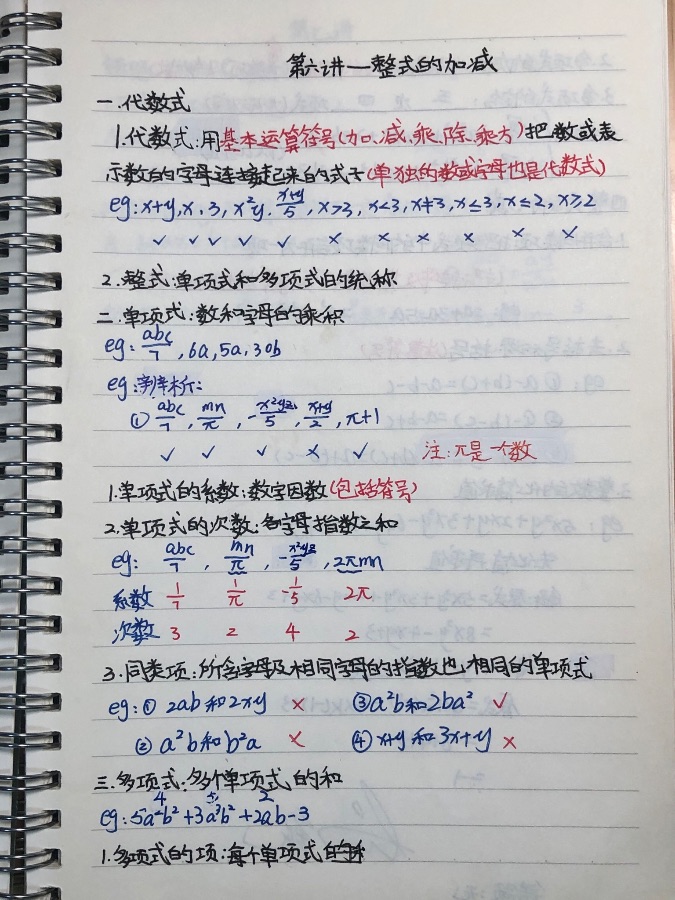 第六讲—整式的加减
一.代数式
1.代数式:用基本运算符号(加、减、乘、除、乘方)把数或表
示数的字母连接起来的式子(单独的数或字母也是代数式)
eg:x+y,x·3,x²y,(x+y)/5,x>3,x<3,x≠3,x≤3,x≤2,x≥2
✓ ✓ ✓ ✓ ✓ × × × × ×
2.整式:单项式和多项式的统称
二.单项式:数和字母的乘积
eg:abc/7,6a,5a,30b
eg:辨析:
① abc/7, mn/π, -x²yz/5, x+y/2, π+1
✓ ✓ ✓ × ✓ 注:π是一个数
1.单项式的系数:数字因数(包括符号)
2.单项式的次数:各字母指数之和
eg: abc/7, mn/π, -x²yz/5, 2πmn
系数 1/7 1/π -1/5 2π
次数 3 2 4 2
3.同类项:所含字母及相同字母的指数也相同的单项式
eg:① 2ab和2xy × ③a²b和2ba² ✓
② a²b和b²a × ④ x+y和3x+y ×
三.多项式:多个单项式的和
4 5 2
eg:5a²b²+3a³b²+2ab-3
1.多项式的项:每个单项式的